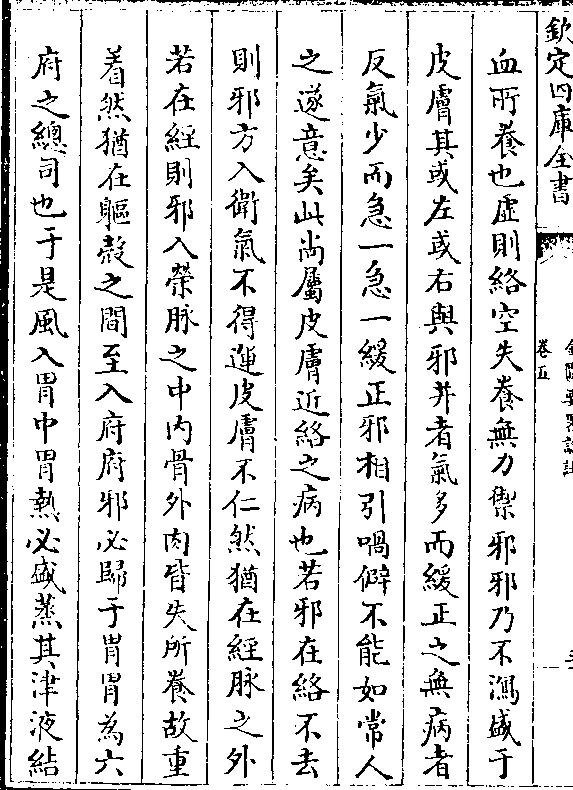 欽定四庫全書
卷五
血所養也虛則絡空失養無力禦邪邪乃不瀉盛于
皮膚其或左或右與邪并者氣多而緩正之無病者
反氣少而急一急一緩正邪相引喎僻不能如常人
之遂意矣此尚屬皮膚近絡之病也若邪在絡不去
則邪方入衛氣不得運皮膚不仁然猶在經脉之外
若在經則邪入榮脉之中内骨外肉皆失所養故重
着然猶在軀殻之間至入府府邪必歸于胃胃為六
府之總司也于是風入胃中胃熱必盛蒸其津液結